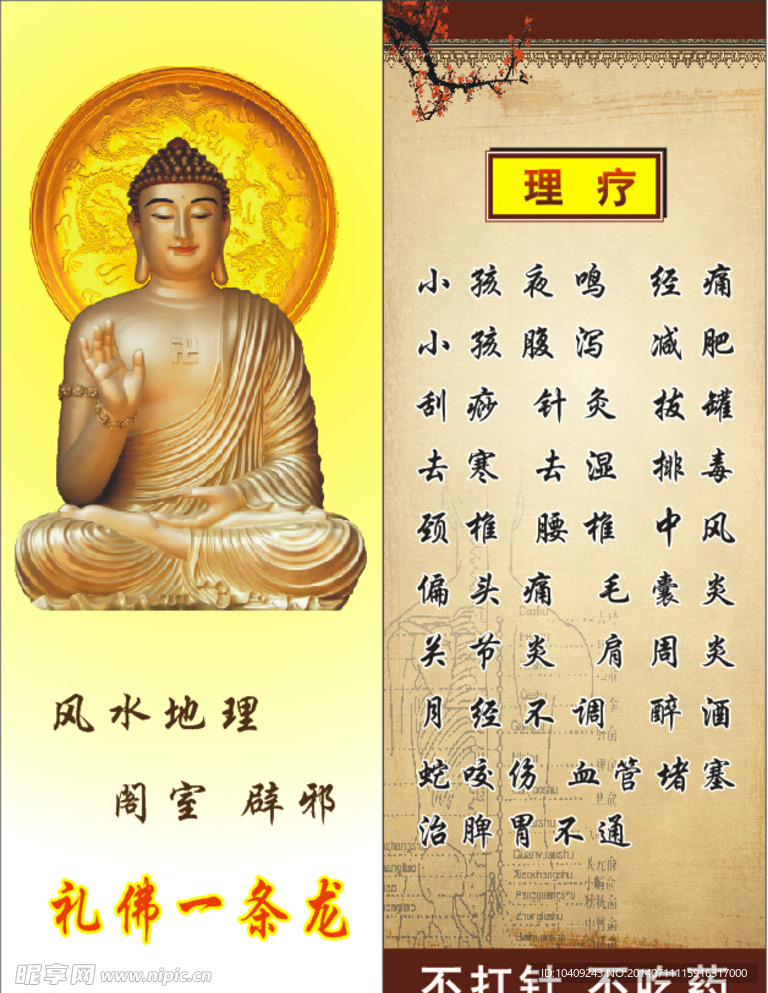 风水地理
阁室 辟邪
礼佛一条龙
昵享网 www.nipic.cn
理疗
小孩夜鸣 经痛
小孩腹泻 减肥
刮痧 针灸 拔罐
去寒 去湿 排毒
颈椎 腰椎 中风
偏头痛 毛囊炎
关节炎 肩周炎
月经不调 醉酒
蛇咬伤 血管堵塞
治脾胃不通
不打针 不吃药
ID:10409243 NO.20140711115916317000